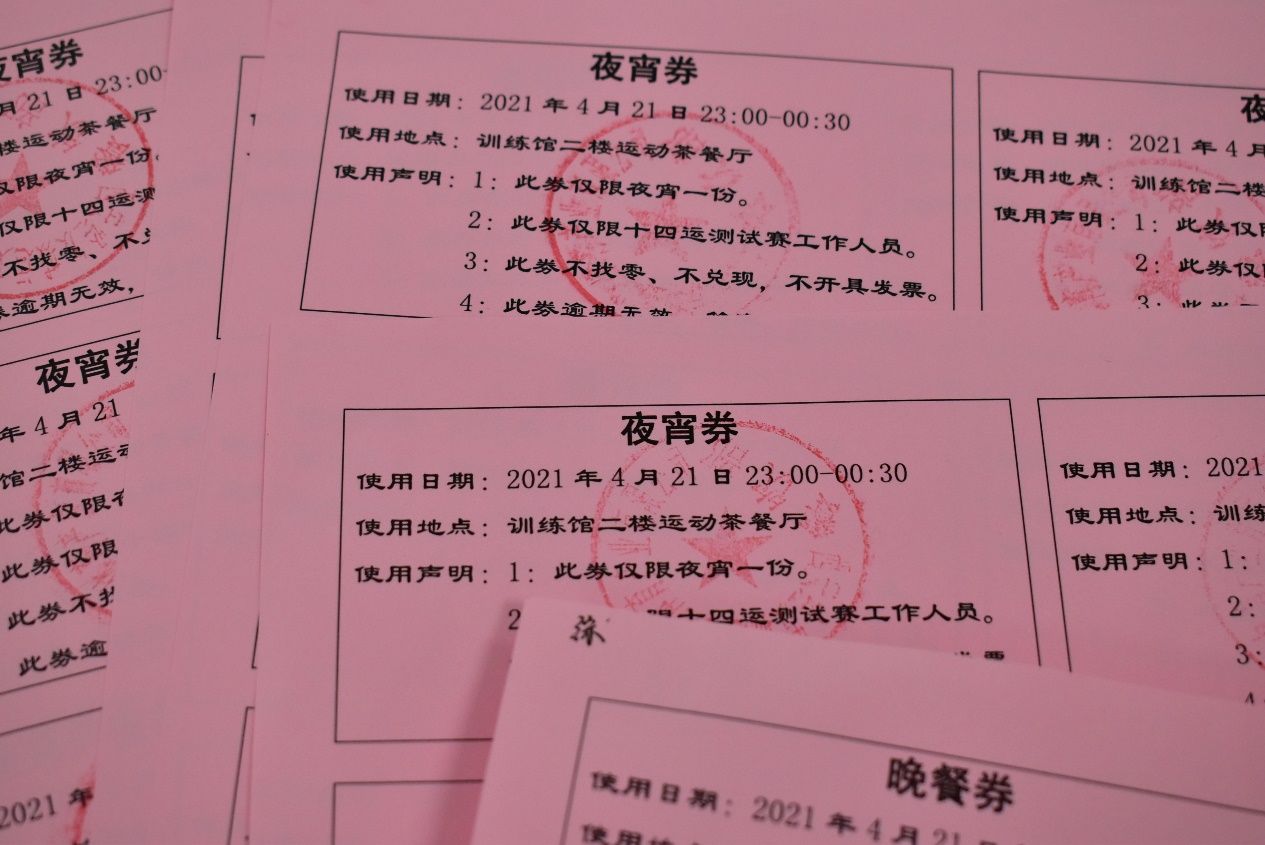 夜宵券
月 21 日 23:00-
楼运动茶餐厅
仅限夜宵一份。
仅限十四运测
不找零、不
券逾期无效，
夜宵券
使用日期：2021 年 4 月 21 日 23:00-00:30
使用地点：训练馆二楼运动茶餐厅
使用声明：1：此券仅限夜宵一份。
2：此券仅限十四运测试赛工作人员。
3：此券不找零、不兑现，不开具发票。
4：此券逾期无效
夜
使用日期：2021 年 4 月
使用地点：训练馆二楼
使用声明：1：此券仅
2：此券仅
3：此券
夜宵券
年 4 月 21
馆二楼运动
此券仅限夜
此券仅限
此券不找
此券逾
2021 年
夜宵券
使用日期：2021 年 4 月 21 日 23:00-00:30
使用地点：训练馆二楼运动茶餐厅
使用声明：1：此券仅限夜宵一份。
2
限十四运测试赛工作人员。
发票
使用日期：2021
使用地点：训练
使用声明：1：
2：
3：
4
晚餐券
使用日期：2021 年 4 月 21
使用地